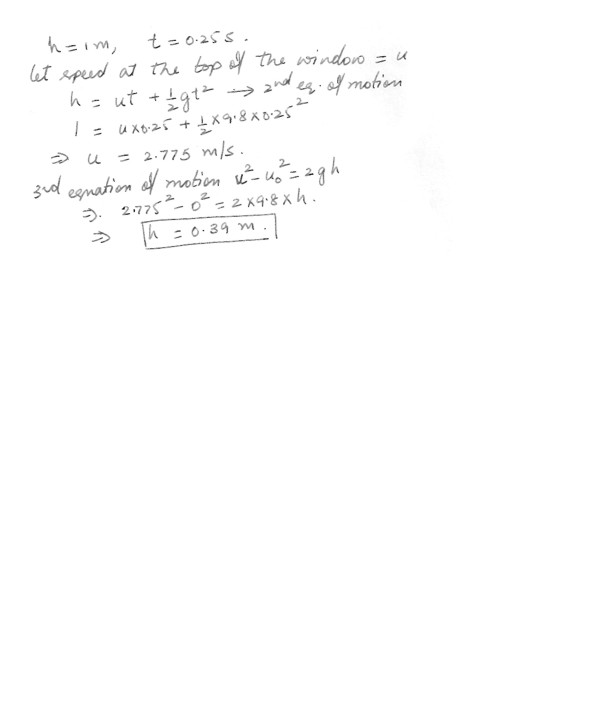 h = 1m, t = 0.25s.
let speed at the top of the window = u
h = ut + 1/2 gt² → 2nd eq. of motion
1 = u x 0.25 + 1/2 x 9.8 x 0.25²
⇒ u = 2.775 m/s.
3rd equation of motion u² - u₀² = 2gh
⇒. 2.775² - 0² = 2 x 9.8 x h.
⇒ h = 0.39 m.